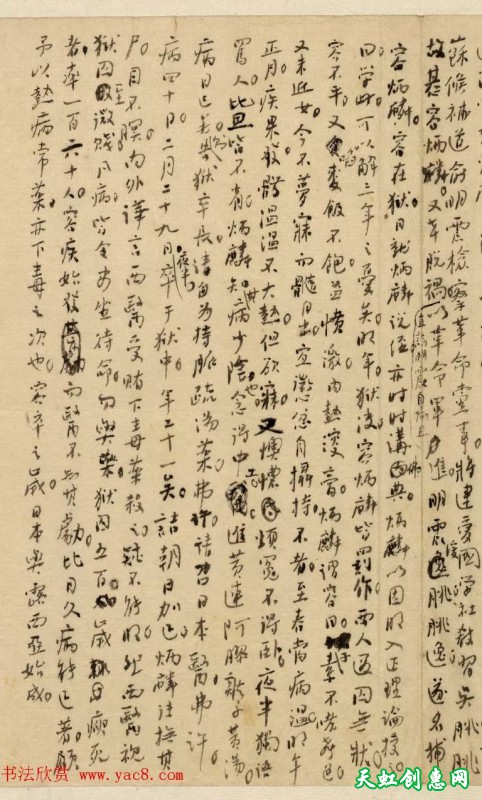 蘇候補道俞明震檢察革命黨事將建愛國學社教習吳朓朓
故惎容炳麟又幸脫禍以革命軍進明震緩朓朓逸遂名捕
容炳麟容在獄日就炳麟說經亦時時講佛典炳麟以因明入正理論授之
曰學此可以解三年之憂矣明年獄決容炳麟皆罰作西人遇囚無狀
容不平又啗麥飯不飽益憤激內熱溲膏炳麟謂容曰子素不嗜聲色
又未近女今不夢寐而髓自出宜懲忿自攝持不者至春當病溫明年
正月疾果發體溫溫不大熱但欲寐又懊憹煩冤不得臥夜半獨語
罵人比旦皆不省炳麟知其病少陰也念得中工進黃連阿膠雞子黃湯
病日已矣獄卒長請自為持脈疏湯藥弗許請召日本醫弗許
病四十日二月二十九日夜半卒于獄中年二十一矣詰朝日加巳炳麟往撫其
尸目不瞑內外譁言西醫受賄下毒藥殺之疑不能明然西醫視
獄囚至微賤凡病皆令安坐待命勿與藥獄囚五百歲瘐死
者率一百六十人容疾始發而醫不知其劇比日久病能已著顧
予以熱病常藥亦下毒之次也容卒之歲日本與露西亞始成
书法欣赏 www.yac8.com
天虹创意网